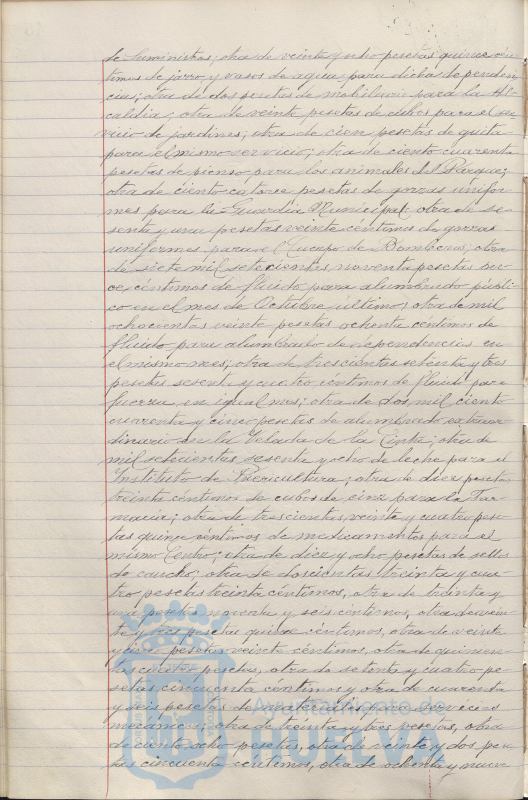 de suministros; otra de veinte y ocho pesetas quince cén-
timos de jarro y vasos de agua para dichas dependen-
cias; otra de dos pesetas de mobiliario para la Al-
caldía; otra de veinte pesetas de cubos para el ser-
vicio de jardines; otra de cien pesetas de guita
para el mismo servicio; otra de ciento cuarenta
pesetas de pienso para los animales del Parque;
otra de ciento catorce pesetas de gorras unifor-
mes para la Guardia Municipal; otra de se-
senta y una pesetas veinte céntimos de gorras
uniformes para el Cuerpo de Bomberos; otra
de siete mil setecientas noventa pesetas on-
ce céntimos de flúido para alumbrado públi-
co en el mes de Octubre último; otra de mil
ochocientas veinte pesetas ochenta céntimos de
flúido para alumbrado de dependencias en
el mismo mes; otra de trescientas setenta y tres
pesetas y cuatro céntimos de flúido para
fuerza en igual mes; otra de dos mil ciento
cuarenta y cinco pesetas de alumbrado extraor-
dinario en la Velada de la Cinta; otra de
mil setecientas sesenta y ocho de leche para el
Instituto de Puericultura; otra de diez pesetas
treinta céntimos de cubos de cinz para la Far-
macia; otra de trescientas veinte y cuatro pese-
tas quince céntimos de medicamentos para el
mismo Centro; otra de diez y ocho pesetas de sellos
de caucho; otra de doscientas treinta y cua-
tro pesetas treinta céntimos, otra de treinta y
una pesetas noventa y seis céntimos, otra de vein-
te y tres pesetas quince céntimos, otra de veinte
y cinco pesetas veinte céntimos, otra de quinien-
tas pesetas, otra de setenta y cuatro pe-
setas cincuenta céntimos y otra de cuarenta
y seis pesetas de materiales para servicios
mecánicos; otra de treinta y tres pesetas, otra
de ciento ocho pesetas, otra de veinte y dos pese-
tas cincuenta céntimos, otra de ochenta y nueve
Ayuntamiento de
HUELVA